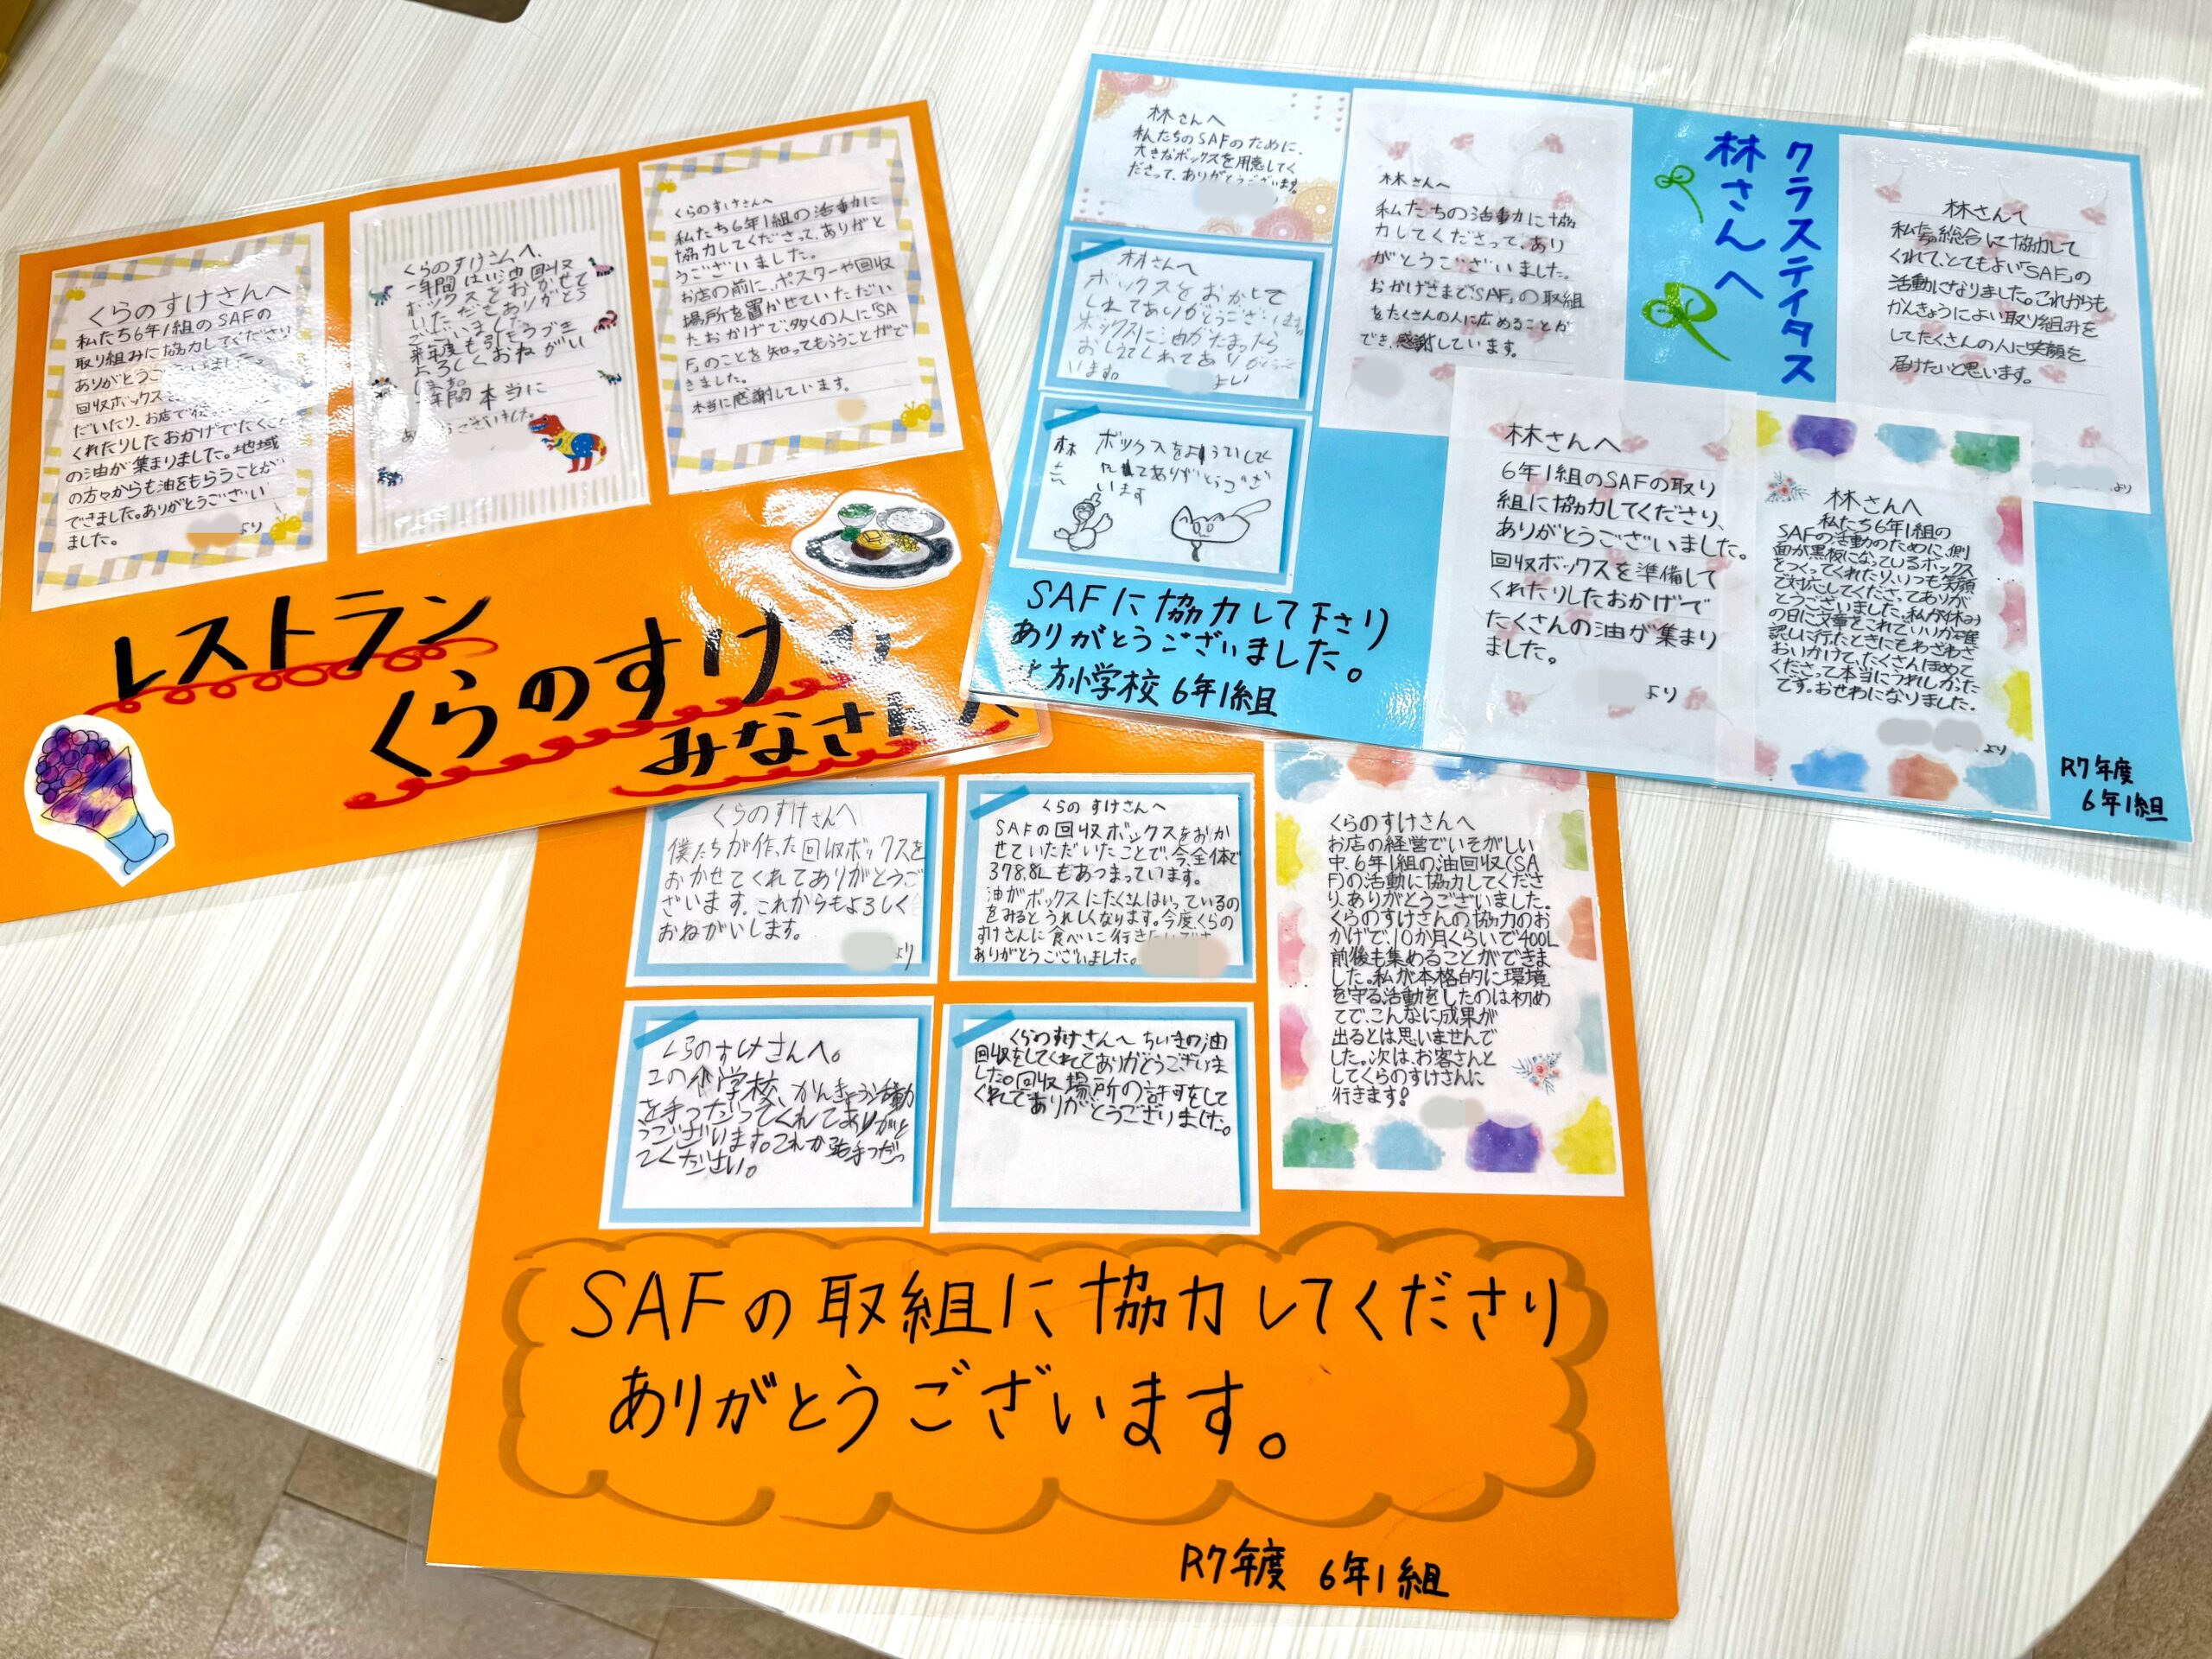 くらのすけさんへ
私たち6年1組のSAFの
取り組みに協力してください
ありがとうございました。
回収ボックス
だいたり、お店で
くれたりしたおかげでたくさん
の油が集まりました。地域
の方々からも油をもらうことが
できました。ありがとうござい
ました。
より
くらのすけさんへ、
一年間はい油回収
ボックスをおかせて
いただきありがとう
ございました
来年度も引きつづき
よろしくおねがい
します。
年間本当に
ございました。
くらのすけさんへ
私たち6年1組の活動に
協力してくださって、ありがと
うございました。
お店の前に、ポスターや回収
場所を置かせていただい
たおかげで、多くの人に「SA
F」のことを知ってもらうことがで
きました。
本当に感謝しています。
レストラン
くらのすけ
みなさん
林さんへ
私たちのSAFのために、
大きなボックスを用意してく
ださって、ありがとうございます。
林さんへ
ボックスをおかして
くれてありがとうございます。
ボックスに油がたまったら
おしえてくれてありがとうござ
います。
より
林さん
ボックスをよういして
くれてありがとうござ
います
SAFに協力して下さり
ありがとうございました。
方小学校 6年1組
林さんへ
私たちの活動に協
力してくださって、あり
がとうございました。
おかげさまで「SAF」の取組
をたくさんの人に広めることが
でき、感謝しています。
クラスティタス
林さんへ
林さんへ
私たち総合に協力して
くれて、とてもよい「SAF」の
活動になりました。これからも
かんきょうによい取り組みを
してたくさんの人に笑顔を
届けたいと思います。
より
林さんへ
6年1組のSAFの取り
組に協力してくださり、
ありがとうございました。
回収ボックスを準備して
くれたりしたおかげで
たくさんの油が集まり
ました。
より
林さんへ
私たち6年1組の
SAFの活動のために、側
面が黒板になっているボックス
をつくってくれたり、いつも笑顔
で対応してくださってありが
とうございました。私が休み
の日に文章をこれでいいか確
認しに行ったときにもわざわざ
おいかけて、たくさんほめて
くださって本当にうれしかった
です。おせわになりました。
より
R7年度
6年1組
くらのすけさんへ
僕たちが作った回収ボックスを
おかせてくれてありがとうご
ざいます。これからもよろしく
おねがいします。
より
くらのすけさんへ
SAFの回収ボックスをおか
せていただいたことで、今、全体で
378.8L もあつまっています。
油がボックスにたくさんはいっているの
をみるとうれしくなります。今度くらの
すけさんに食べに行きたいです
ありがとうございました。
くらのすけさんへ
お店の経営でいそがしい
中、6年1組の油回収(SA
F)の活動に協力してくださ
り、ありがとうございました。
くらのすけさんの協力のお
かげで、10か月くらいで400L
前後も集めることができま
した。私が本格的に環境
を守る活動をしたのは初め
てで、こんなに成果が
出るとは思いませんで
した。次は、お客さんと
してくらのすけさんに
行きます!
くらのすけさんへ。
この小学校、かんきょう活動
を手つだってくれてありがと
うございます。これからも手つだっ
てください。
くらのすけさんへ ちいきの油
回収をしてくれてありがとうございま
した。回収場所の許可をして
くれてありがとうございました。
SAFの取組に協力してくださり
ありがとうございます。
R7年度 6年1組